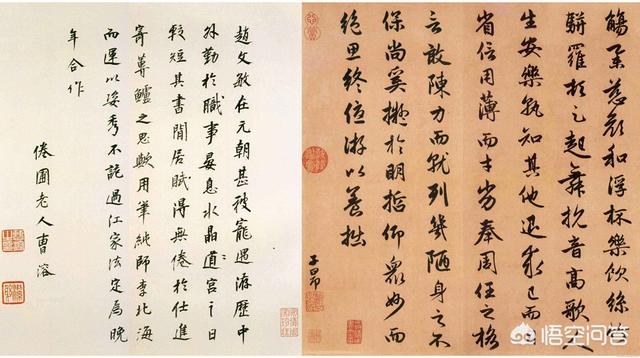 觴舉慈顏和浮杯樂飲絲竹
駢羅頓足起舞抗音高歌人
生安樂孰知其他退求己而自
省信用薄而才劣奉周任之格
言敢陳力而就列幾陋身之不
保尚奚擬於明哲仰衆妙而
絕思終優游以養拙
子昂
趙文敏在元朝甚被寵遇洊歷中
外勤於職事晏息水晶道宮之日
較短其書閒居賦得無倦於仕進
寄蓴鱸之思歟用筆純師李北海
而運以姿秀不詭過江家法定爲晚
年合作
倦圃老人曹溶
悟空问答